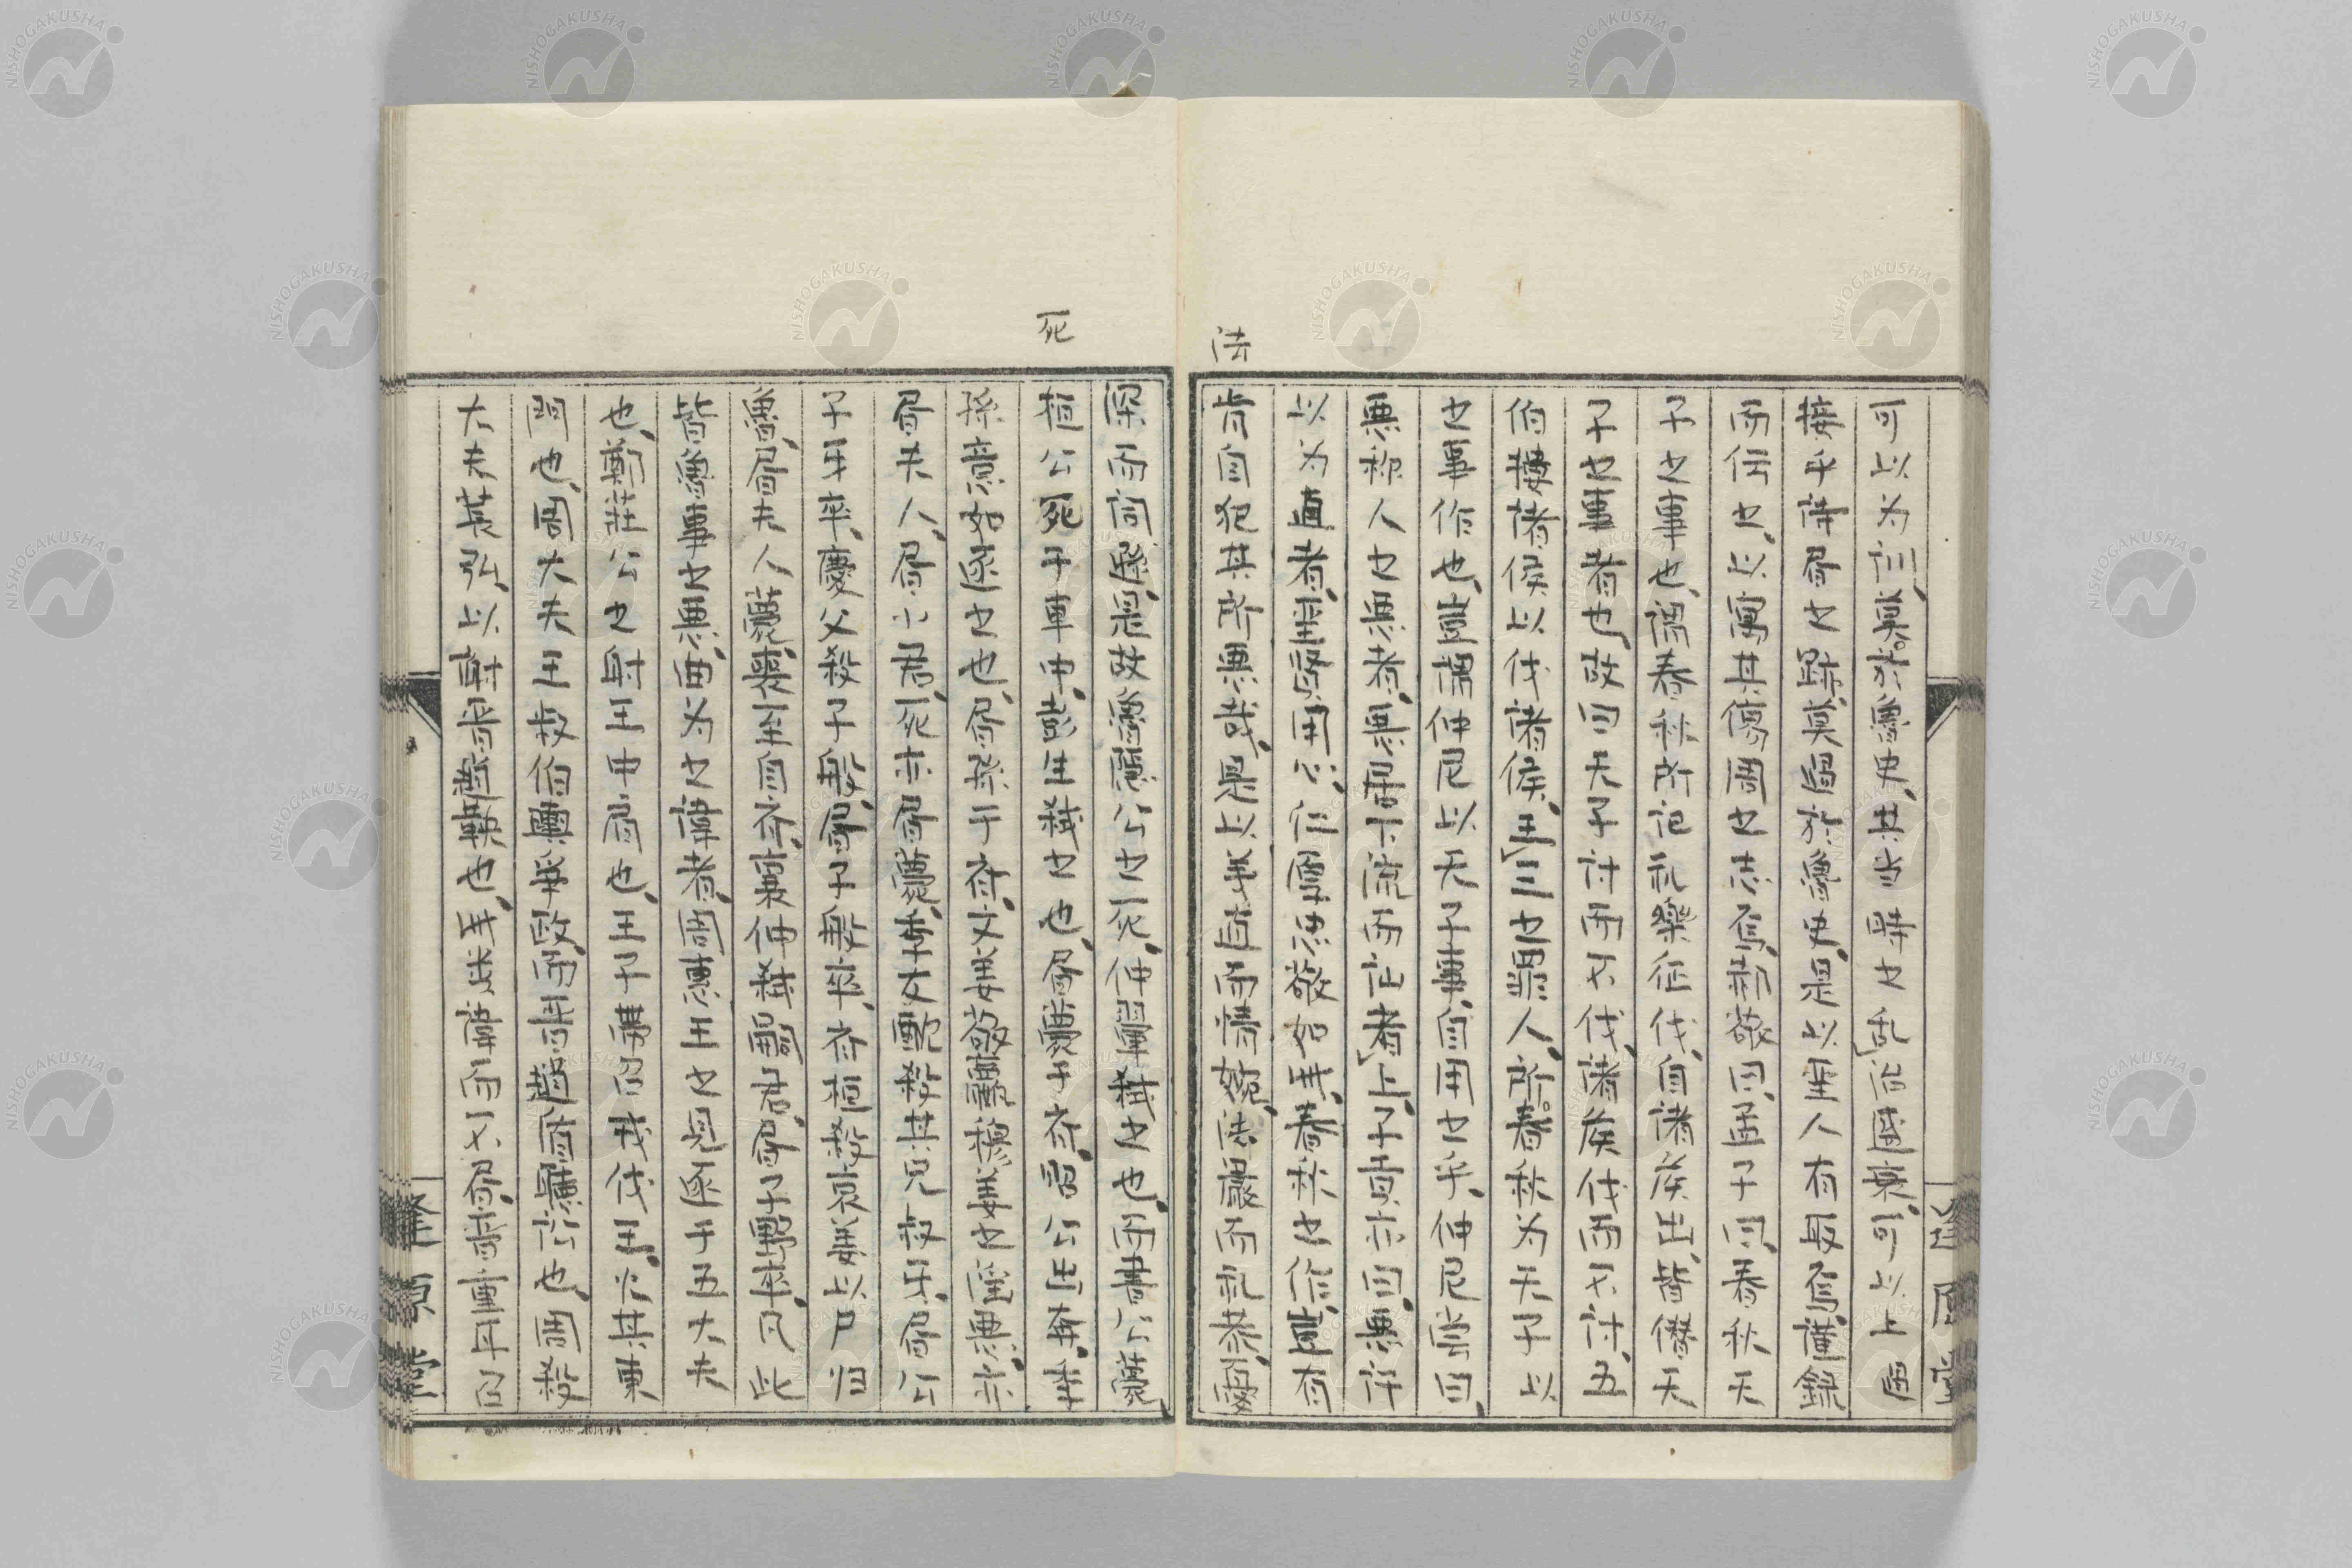 可以为訓莫於魯史其当時之乱俗盛衰可以上遡
接乎詩書之跡莫過於魯史是以聖人有取焉謹錄
而伝之以寓其傷周之志焉新敬曰孟子曰春秋天
子之事也謂春秋所記礼樂征伐自諸侯出皆僭天
子之事者也故曰天子討而不伐諸侯伐而不討五
伯摟諸侯以伐諸侯王三之罪人所春秋为天子以
之事作也豈謂仲尼以天子事自用之乎仲尼嘗曰
悪称人之悪者悪居下流而訕者上子貢亦曰悪訐
以为直者聖賢用心仁厚忠敬如此春秋之作豈有
肯自犯其所悪哉是以義直而情婉法嚴而礼恭西
法
梁而同遜是故魯隱公之死仲翬弑之也而書公薨
桓公死于車中彭生弑之也書薨于齐昭公出奔季
死
孫意如逐之也書孫于齐文姜敬嬴穆姜之淫悪亦
書夫人書小君死亦書薨季友酖殺其兄叔牙書公
子牙卒慶父殺子般書子般卒齐桓殺哀姜以尸归
魯書夫人薨喪至自齐襄仲弑嗣君書子野卒凡此
皆魯事之悪曲为之諱者周惠王之見逐于五大夫
也鄭莊公之射王中肩也王子帯召戎伐王火其東
門也周大夫王叔伯輿爭政而晋趙盾聽訟也周殺
大夫萇弘以謝晋趙鞅也此类諱而不書晋重耳召